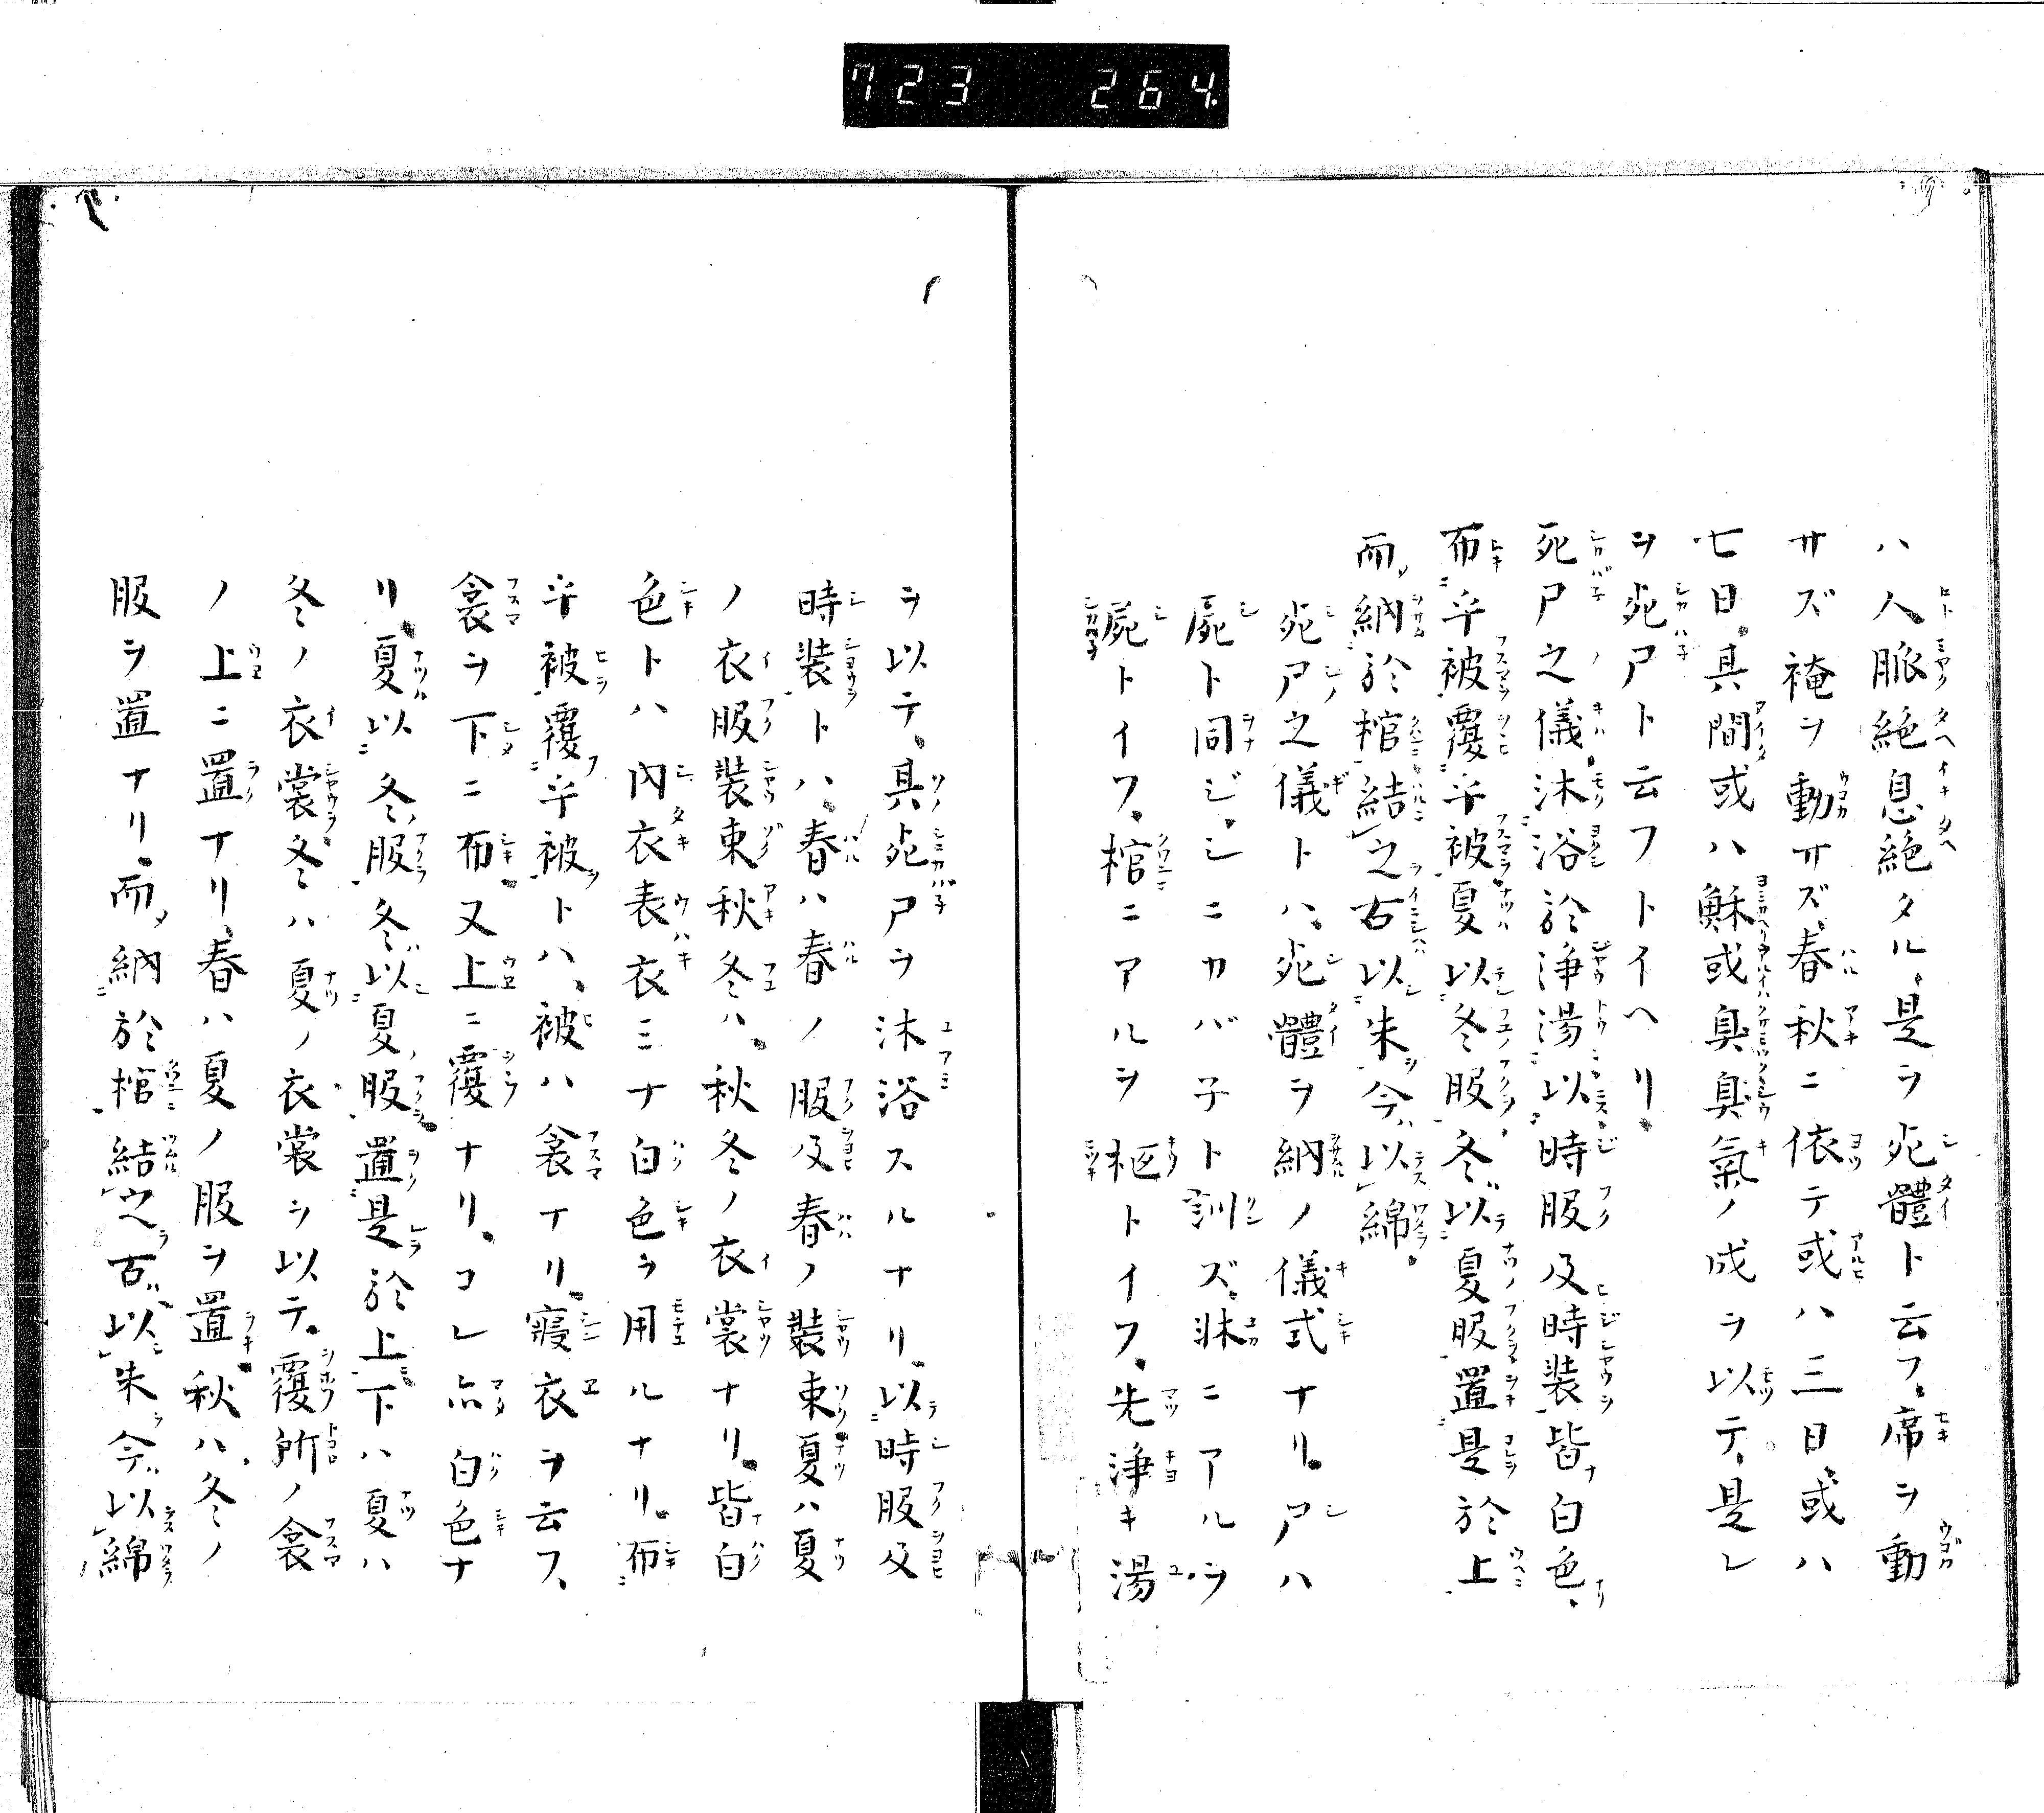 723 264.
ハ人脈絶息絶タル、是ヲ死體ト云フ、席ヲ動
サズ裺ヲ動サズ、春秋ニ依テ或ハ三日、或ハ
七日、其間或ハ穌或臭臭氣ノ成ヲ以テ、是レ
ヲ死尸ト云フトイヘリ、
死尸之儀、沐浴於浄湯以時服及時装皆白色、
布乎被覆乎被夏以冬服冬以夏服置是於上
而納於棺結之古以朱今以綿。
死尸之儀トハ、死體ヲ納ノ儀式ナリ、尸ハ
屍ト同ジ、シニカバ子ト訓ズ、牀ニアルヲ
屍トイフ、棺ニアルヲ柩トイフ、先浄キ湯
ヲ以テ、其死尸ヲ沐浴スルナリ、以時服及
時装トハ、春ハ春ノ服及春ノ装束夏ハ夏
ノ衣服装束秋冬ハ、秋冬ノ衣裳ナリ、皆白
色トハ内衣表衣ミナ白色ヲ用ルナリ、布
乎被覆乎被トハ、被ハ衾ナリ、寝衣ヲ云フ、
衾ヲ下ニ布、又上ニ覆ナリ、コレ亦白色ナ
リ、夏以冬服冬以夏服置是於上下ハ夏ハ
冬ノ衣裳冬ハ夏ノ衣裳ヲ以テ、覆所ノ衾
ノ上ニ置ナリ、春ハ夏ノ服ヲ置、秋ハ冬ノ
服ヲ置ナリ、而納於棺結之古以朱今以綿